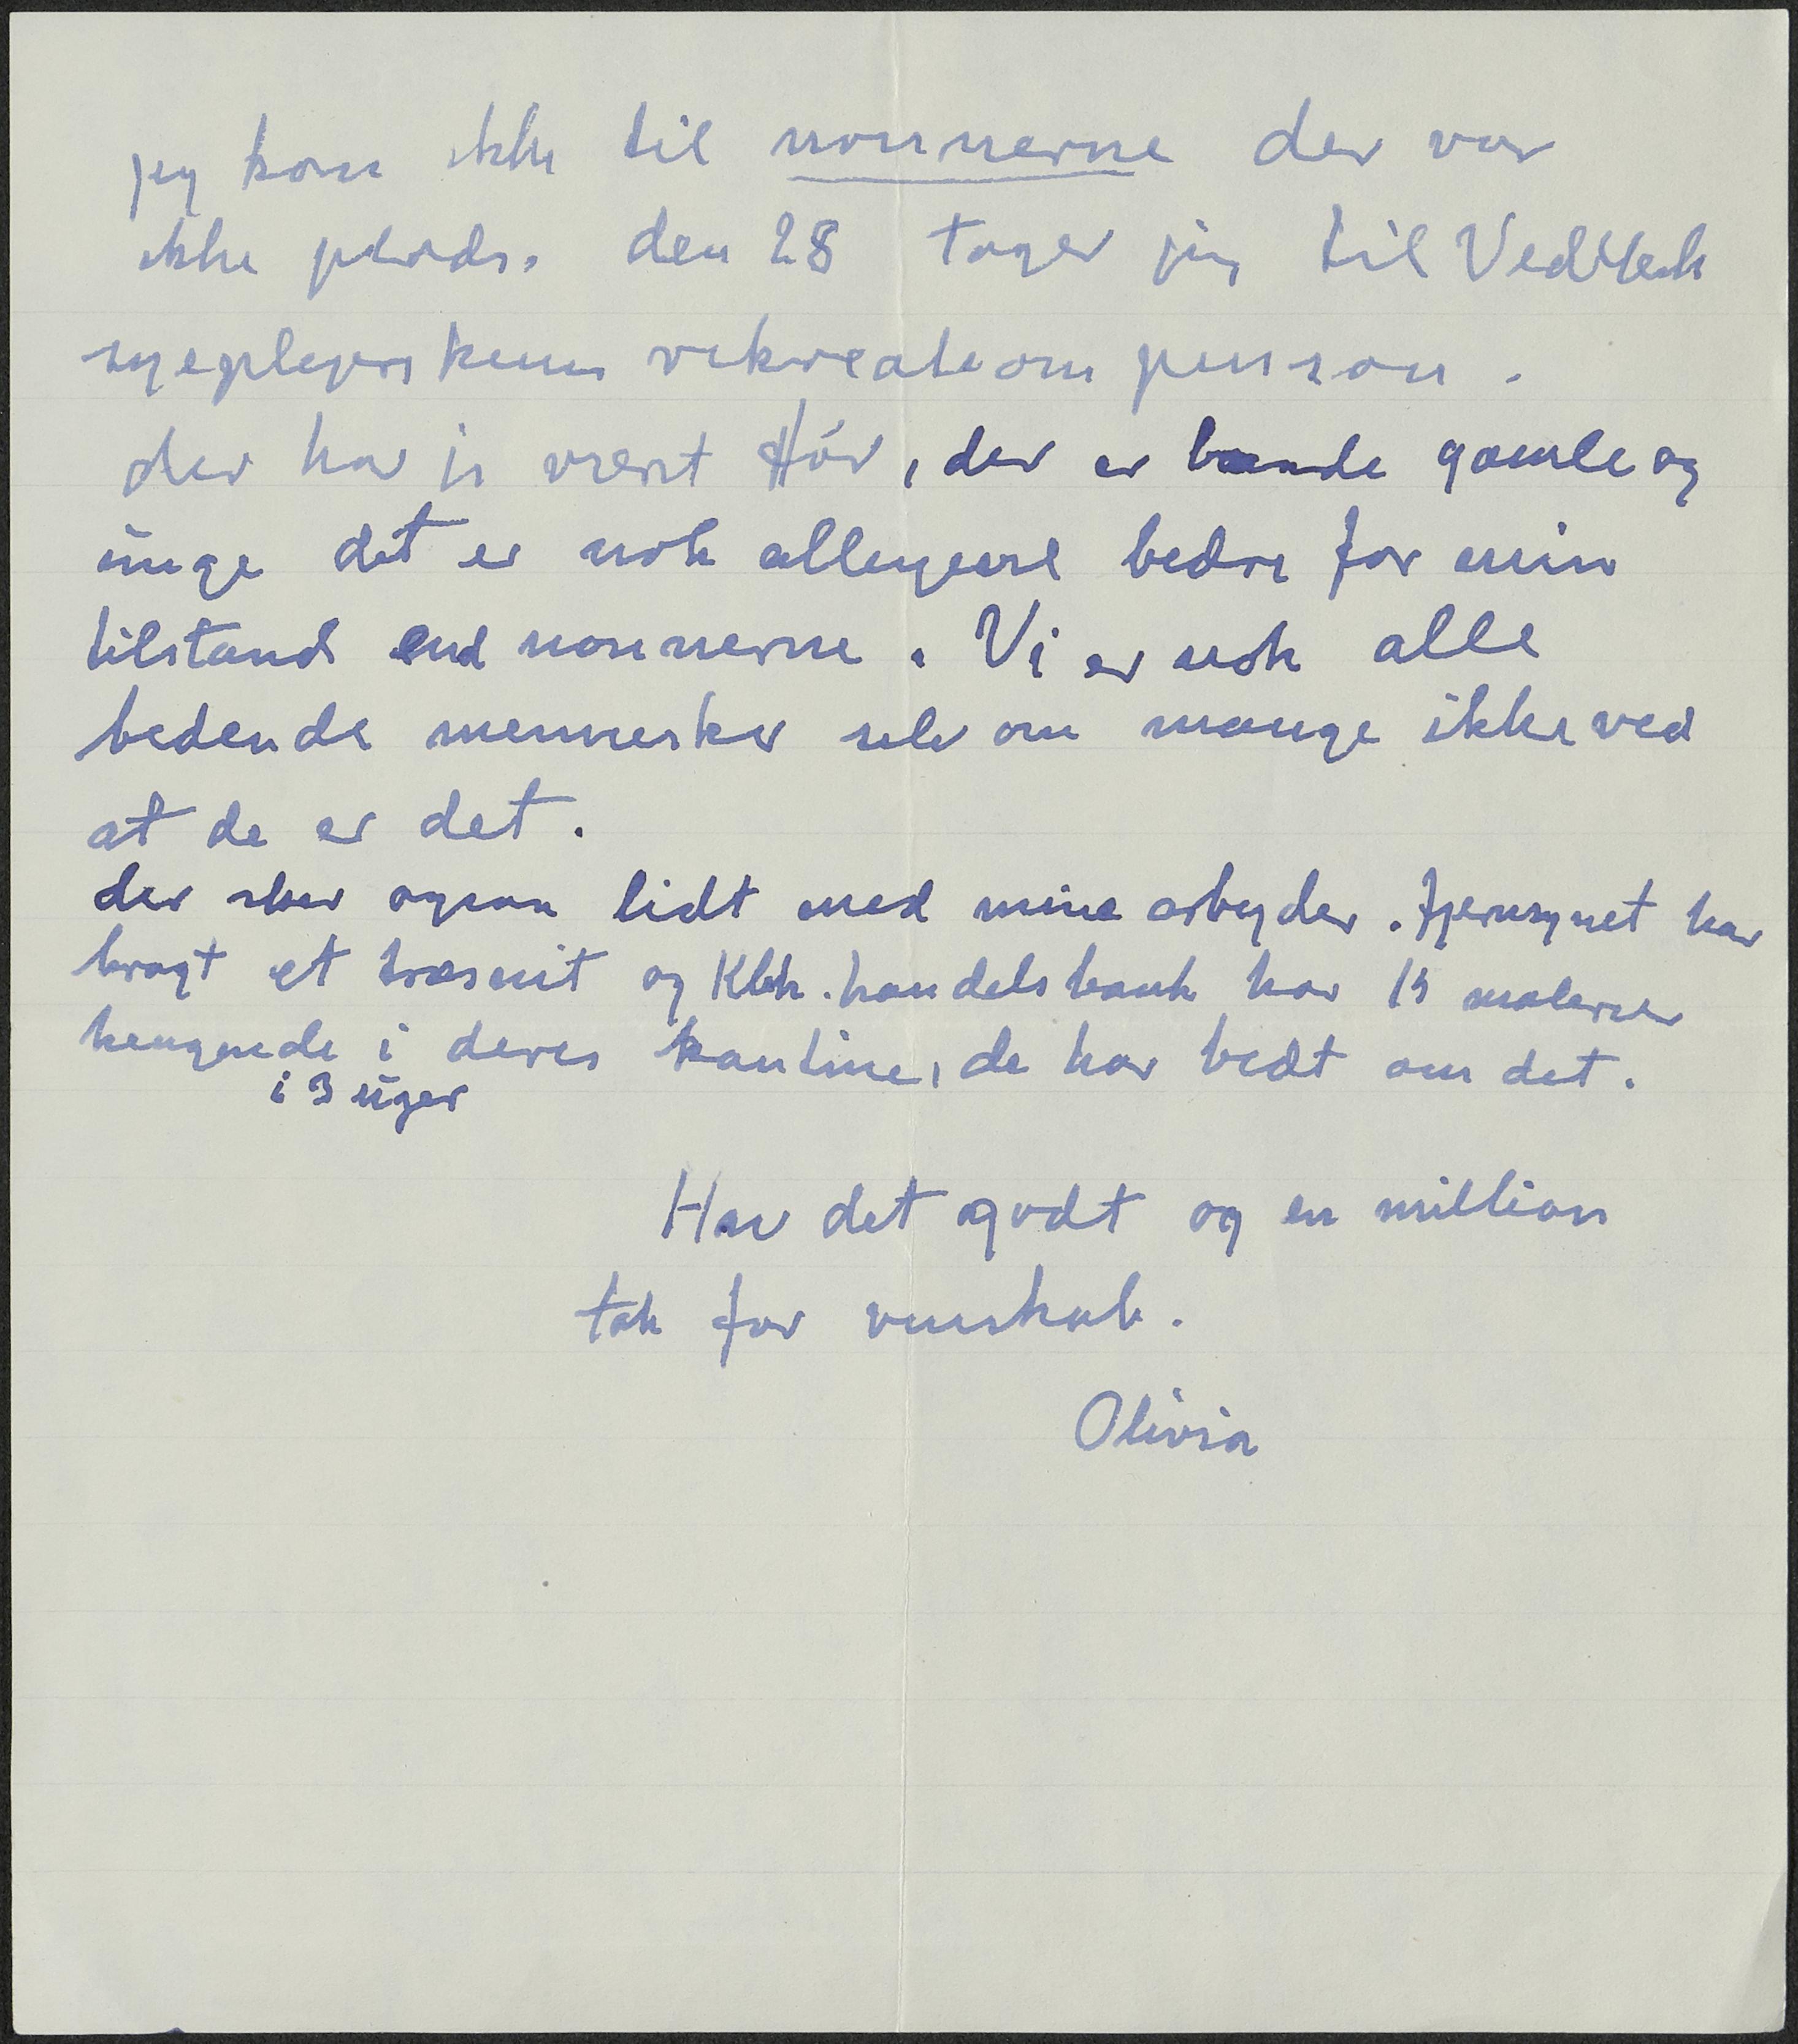 jeg kom ikke til nonnerne der var
ikke plads. den 28 tager jeg til Vedbek
sygeplejerskens rekreations pension.
der har jeg vært för, der er baade gamle og
unge det er nok alligevel bedre for min
tilstand end nonnerne. Vi er nok alle
bedende mennesker selv om mange ikke ved
at de er det.
der sker ogsaa lidt med mine arbejder. fjernsynet har
bragt et træsnit og Kbh. handelsbank har 15 malerier
hengende i deres kantine, de har bedt om det.
i 3 uger
Hav det godt og en million
tak for venskab.
Olivia